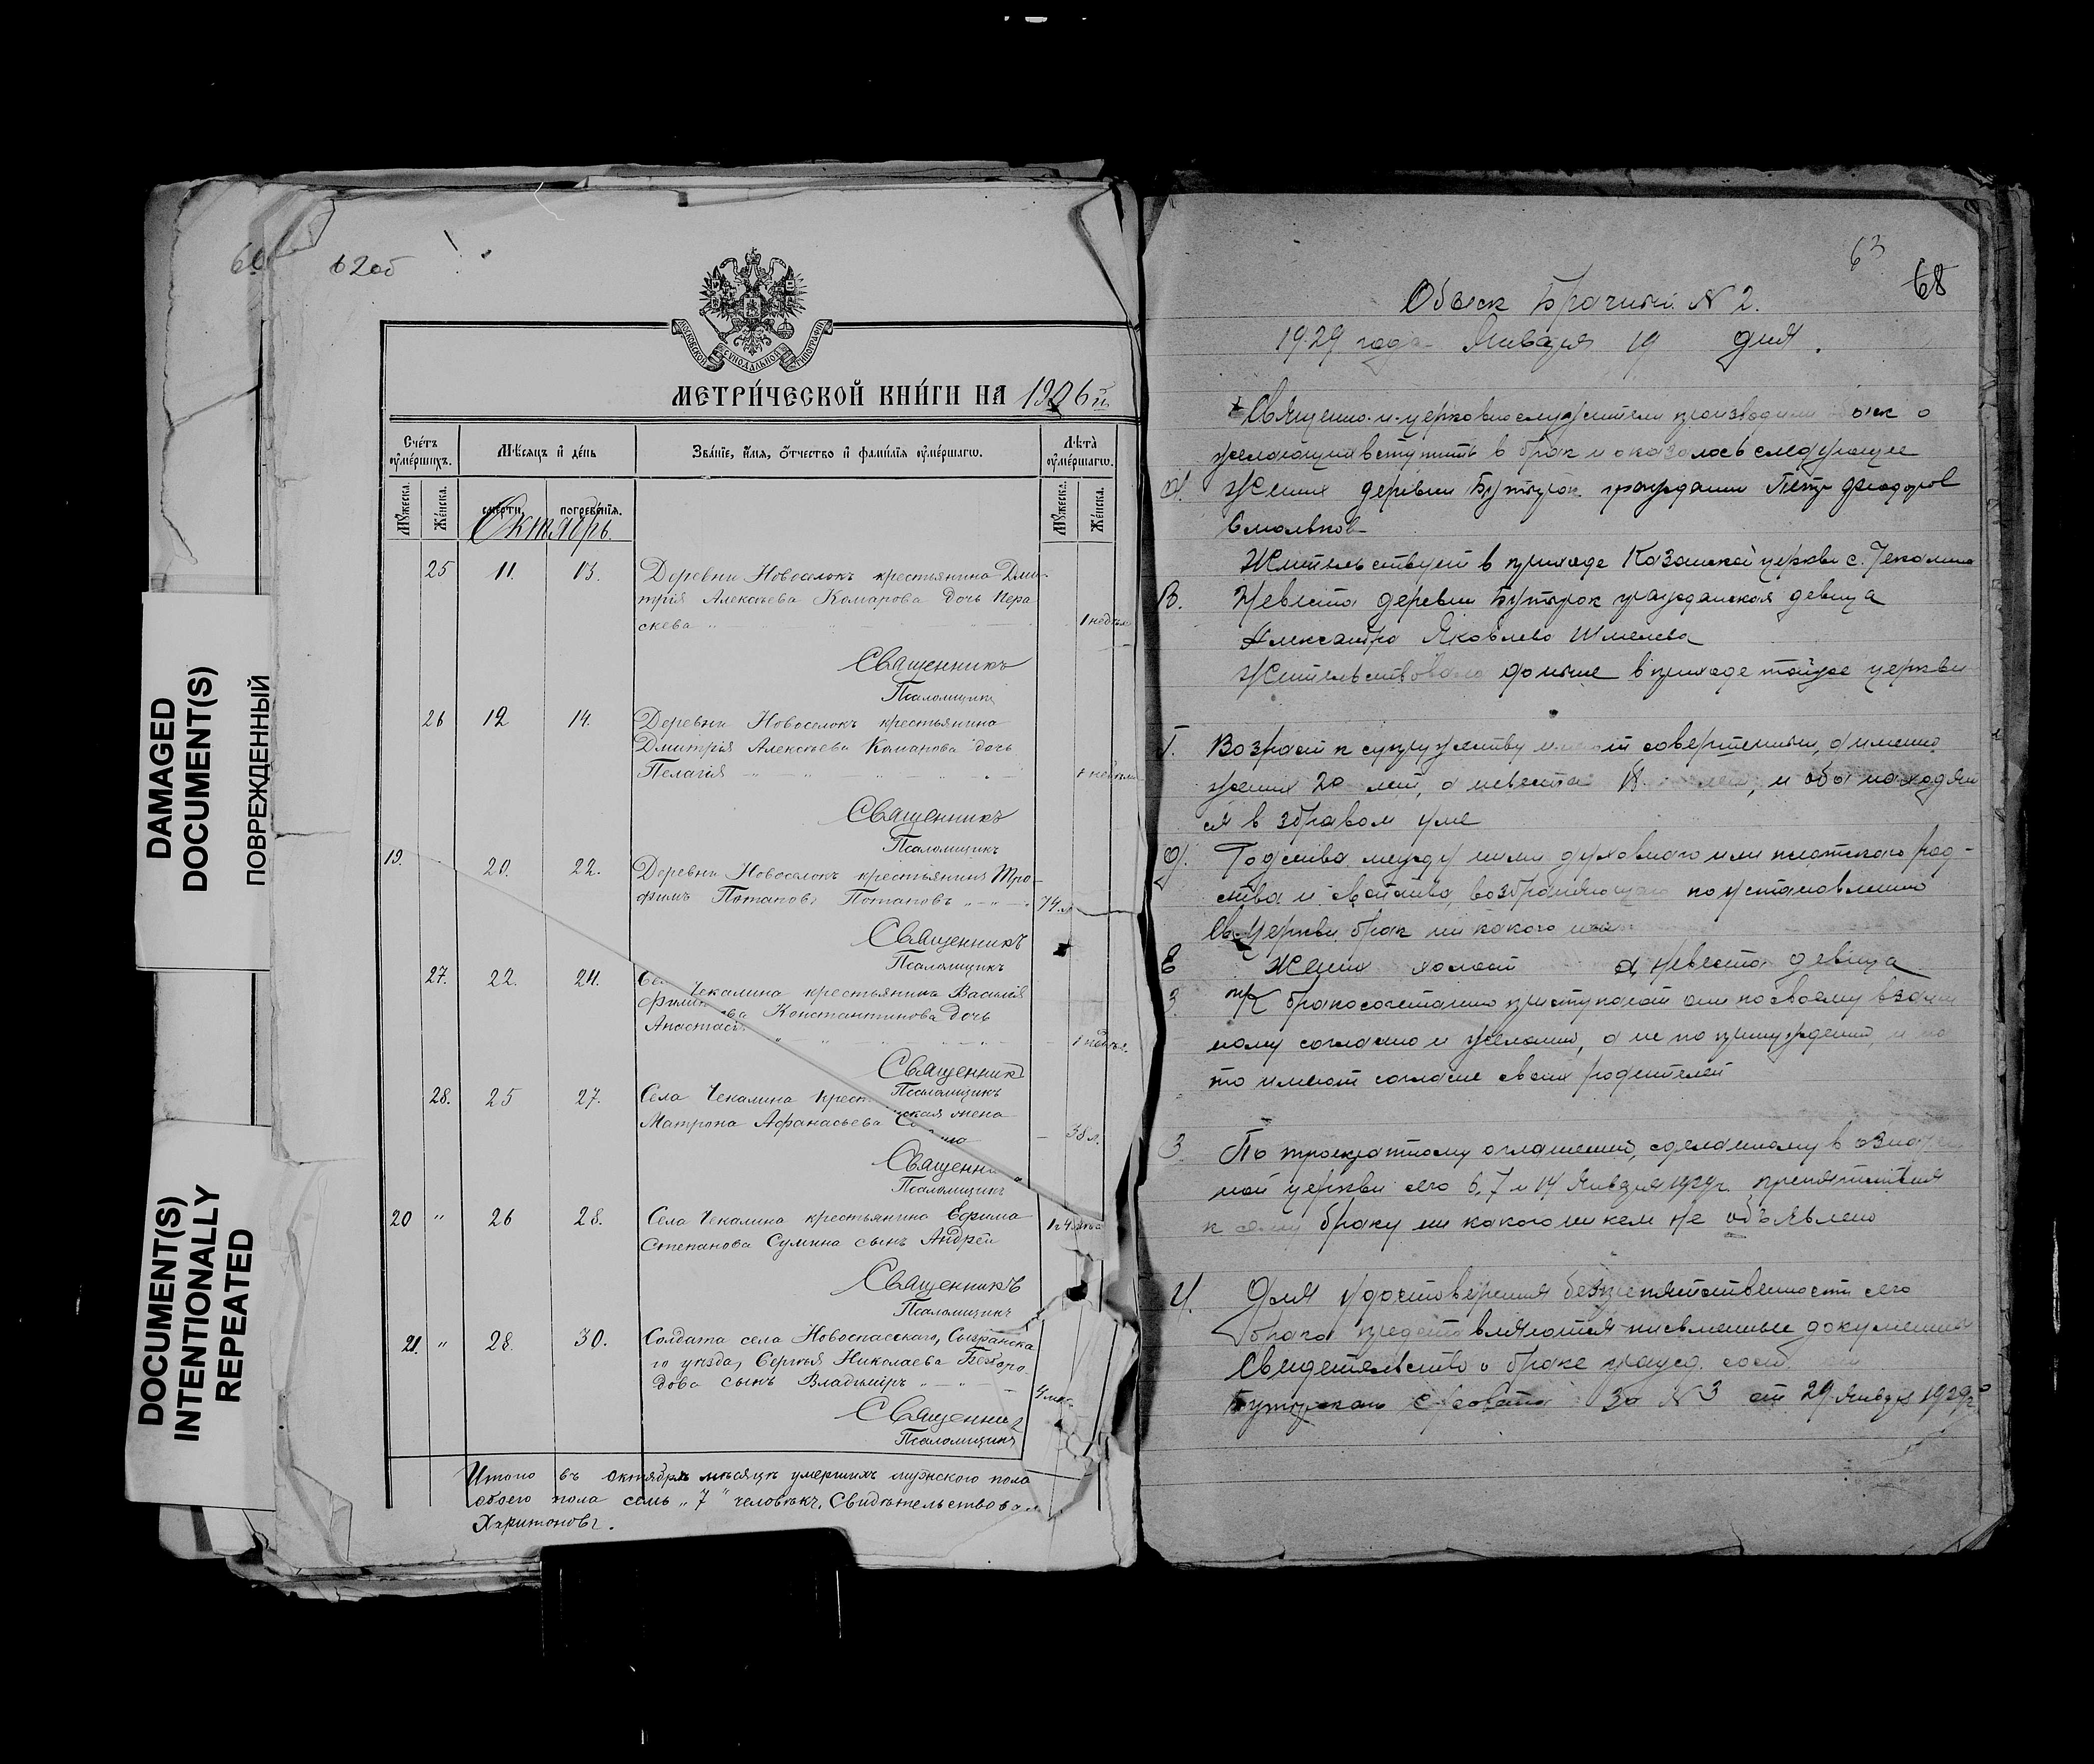 DAMAGED
DOCUMENT(S)
ПОВРЕЖДЕННЫЙ
DOCUMENT(S)
INTENTIONALLY
REPEATED
62об
МОСКОВСКОЙ СѴНОДАЛЬНОЙ ТИПОГРАФІИ
МЕТРИ́ЧЕСКОЙ КНИ́ГИ НА 1906й
Сче́тъ ᲂу҆ме́ршихъ.
Мѣ́сяцъ и҆ де́нь
Зва́нїе, и҆́мя, ѻ҆́тчество и҆ фами́лїя ᲂу҆ме́ршагѡ.
Лѣ́та ᲂу҆ме́ршагѡ.
Мꙋ́жеска. Же́нска. сме́рти. погребе́нїя. Мꙋ́жеска. Же́нска.
Октябрь.
25 11. 13. Деревни Новоселокъ крестьянина Дми-
трія Алексѣева Комарова дочь Пера
скева 1 недѣли
Священникъ
Псаломщикъ
26 12 14. Деревни Новоселокъ крестьянина
Дмитрія Алексѣева Комарова дочь
Пелагія 1 недѣли
Священникъ
Псаломщикъ
19. 20. 22. Деревни Новоселокъ крестьянинъ Тро-
фимъ Потаповъ Потаповъ 74 л.
Священникъ
Псаломщикъ
27. 22. 24. Чекалина крестьянина Василія
Константинова дочь
Анастас
Священникъ
Псаломщикъ
28. 25 27. Села Чекалина крест ская жена
Матрона Афанасьева 38 л.
Священни
Псаломщикъ
20 " 26 28. Села Чекалина крестьянина Ефима
Степанова Сумина сынъ Андрей
Священникъ
Псаломщикъ
21. " 28. 30. Солдата села Новоспасскаго, Сызранска
го уѣзда, Сергѣя Николаева Безборо
дова сынъ Владиміръ
Священникъ
Псаломщикъ
Итого въ октябрѣ мѣсяцѣ умершихъ мужского пола
обоего пола семь „7" человѣкъ. Свидѣтельствова
Харитоновъ.
63
68
Обыск Брачный N 2.
1929 года Января 19 дня.
Священно-и-церковнослужители производили обыск о
желающих вступить в брак и оказалось следующее
Жених деревни Бутырок гражданин Петр Феодоров
Смольков
Жительствует в приходе Казанской церкви с. Чекалина
В. Невеста деревни Бутырок гражданская девица
Александра Яковлева Шмелева
Жительствовала доныне в приходе той же церкви
Г. Возраст к супружеству имеют совершенный, а именно
жених 20 лет, а невеста 18 лет, и оба находят
ся в здравом уме
Д. Родства между ними духовного или плотского род-
ства и свойства, возбраняющего по установлению
Св. Церкви брак никакого нет
Е Жених холост а невеста девица
К бракосочетанию приступают они по своему взаим
ному согласию и желанию, а не по принуждению, и на
то имеют согласие своих родителей
З. По троекратному оглашению, сделанному в означен
ной церкви сего 6, 7 и 14 Января 1929г. препятствия
к сему браку никакого никем не объявлено
И. Для удостоверения безпрепятственности сего
брака представляются письменные документы
Свидетельство о браке гражд. сост.
Бутырского С-совета за N 3 от 29 Января 1929г.